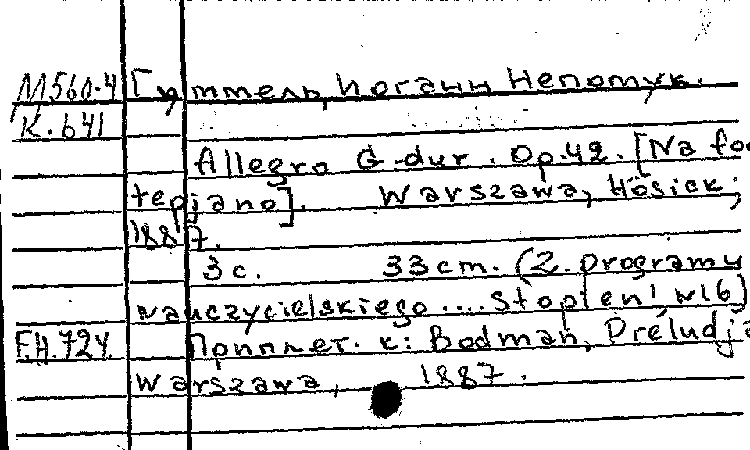 М560.4 Гуммель, Иоганн Непомук.
К.641
Allegro G-dur. Op.42. [Na for
tepjano]. Warszawa, Hösick,
1887.
3 с. 33 cm. (2. programu
nauczycielskiego .... Stopień, №16)
Е.Н.724 Приплет. к: Bodman, Préludja
Warszawa, 1887.